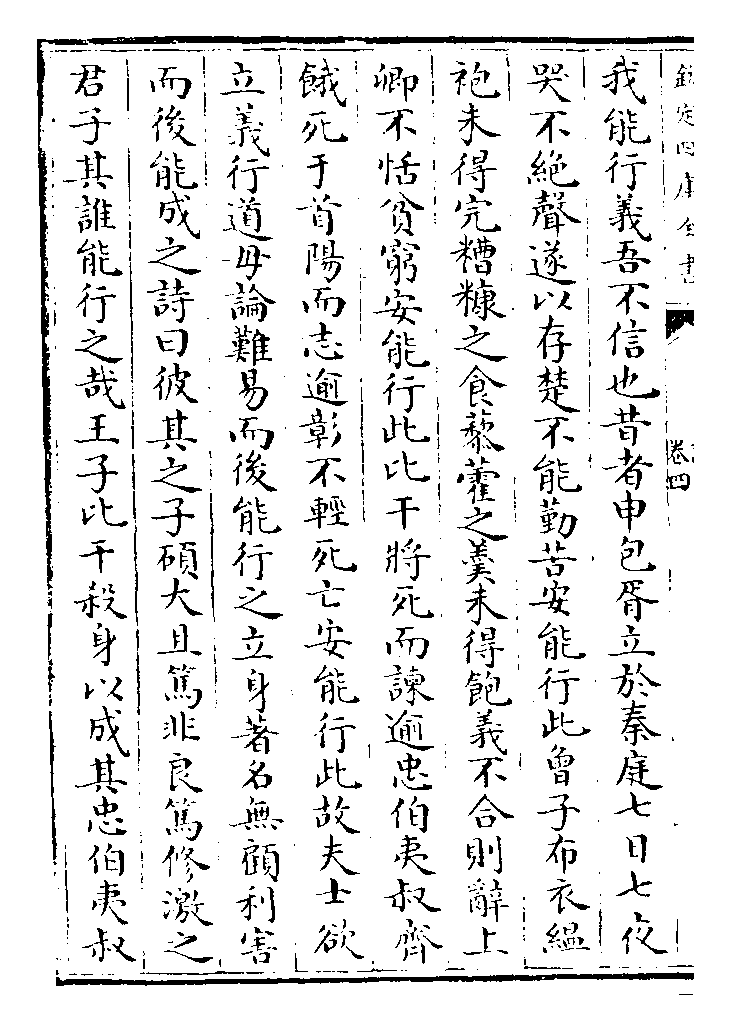 欽定四庫全書
卷四
我能行義吾不信也昔者申包胥立於秦庭七日七夜
哭不絶聲遂以存楚不能勤苦安能行此曾子布衣緼
袍未得完糟糠之食藜藿之羮未得飽義不合則辭上
卿不恬貧窮安能行此比干將死而諫逾忠伯夷叔齊
餓死于首陽而志逾彰不輕死亡安能行此故夫士欲
立義行道毋論難易而後能行之立身著名無顧利害
而後能成之詩曰彼其之子碩大且篤非良篤修激之
君子其誰能行之哉王子比干殺身以成其忠伯夷叔